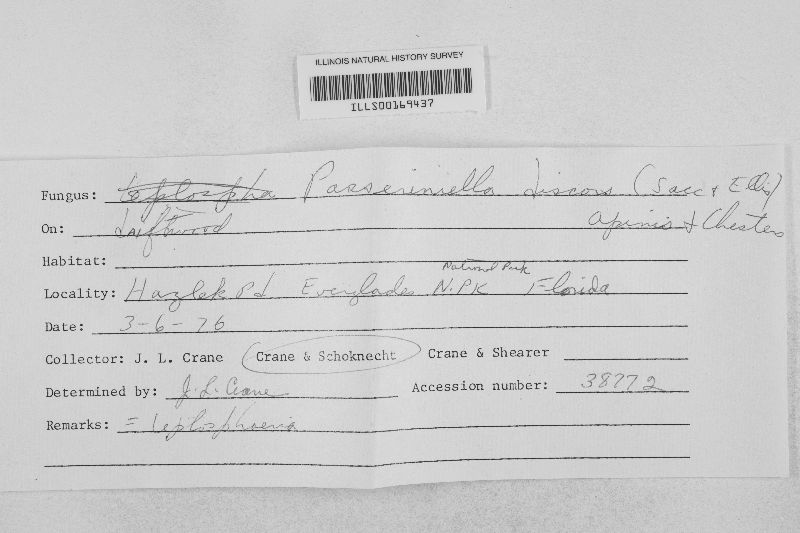 ILLINOIS NATURAL HISTORY SURVEY
ILLS00169437
Fungus: Leptospha Passeriniella discors (Sacc & Ellis)
On: Driftwood Apinis & Chesters
Habitat:
National Park
Locality: Pd Everglades N.PK Florida
Date: 3-6-76
Collector: J. L. Crane Crane & Schoknecht Crane & Shearer
Determined by: J. L. Crane Accession number: 38772
Remarks: = Leptosphaeria